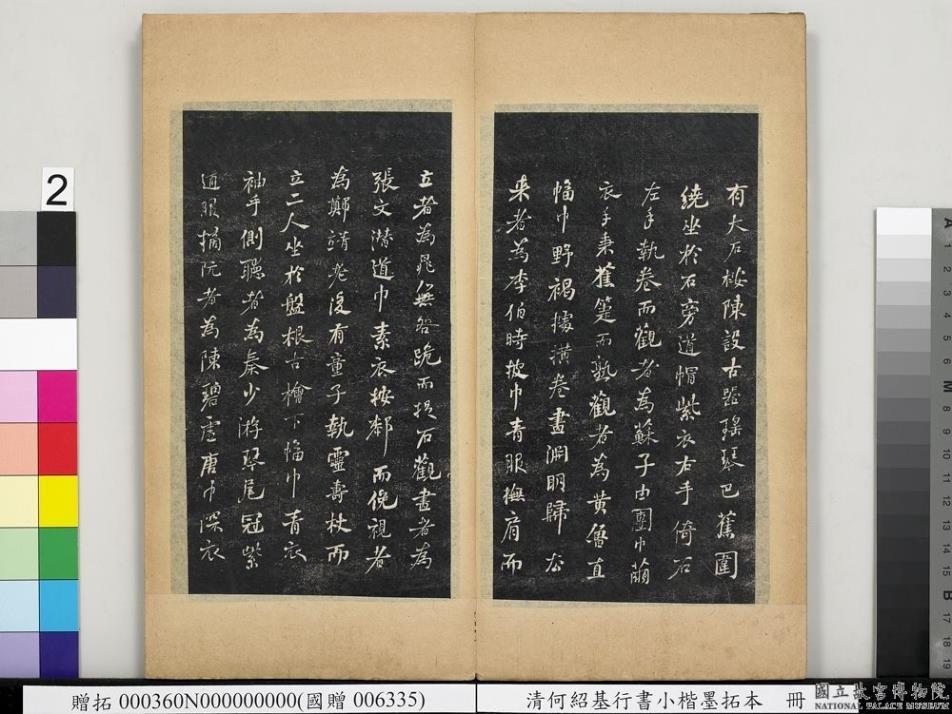 有大石桉陳設古器瑤琴巴蕉圍
繞坐於石旁道帽紫衣右手倚石
左手執卷而觀者為蘇子由團巾繭
衣手秉蕉箑而熟觀者為黃魯直
幅巾野褐據橫卷畫淵明歸去
来者為李伯時披巾青服撫肩而
立者為晁無咎跪而捉石觀畫者為
張文潛道巾素衣按厀而俛視者
為鄭靖老後有童子執靈壽杖而
立二人坐於盤根古檜下幅巾青衣
袖手側聽者為秦少游琴尾冠紫
道服摘阮者為陳碧虛唐巾深衣
2
贈拓 000360N000000000(國贈 006335)
清何紹基行書小楷墨拓本 冊
國立故宮博物院
NATIONAL PALACE MUSEUM